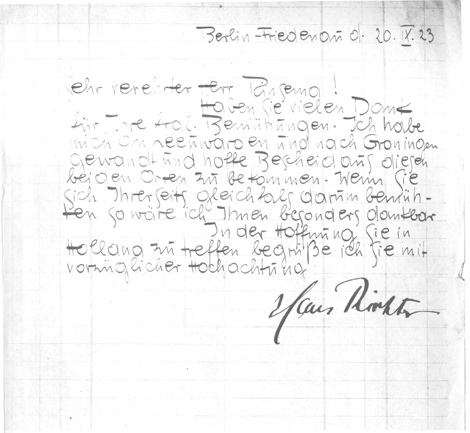 Berlin-Friedenau d. 20. IX. 23
Sehr verehrter Herr Rinsema!
Haben Sie vielen Dank
für Ihre frdl. Bemühungen. Ich habe
mich an Leeuwarden und nach Groningen
gewandt und hoffe Bescheid aus diesen
beiden Orten zu bekommen. Wenn Sie
sich Ihrerseits gleichfals darum bemüh-
ten so wäre ich Ihnen besonders dankbar
In der Hoffnung Sie in
Holland zu treffen begrüße ich Sie mit
vorzüglicher Hochachtung
Hans Richter